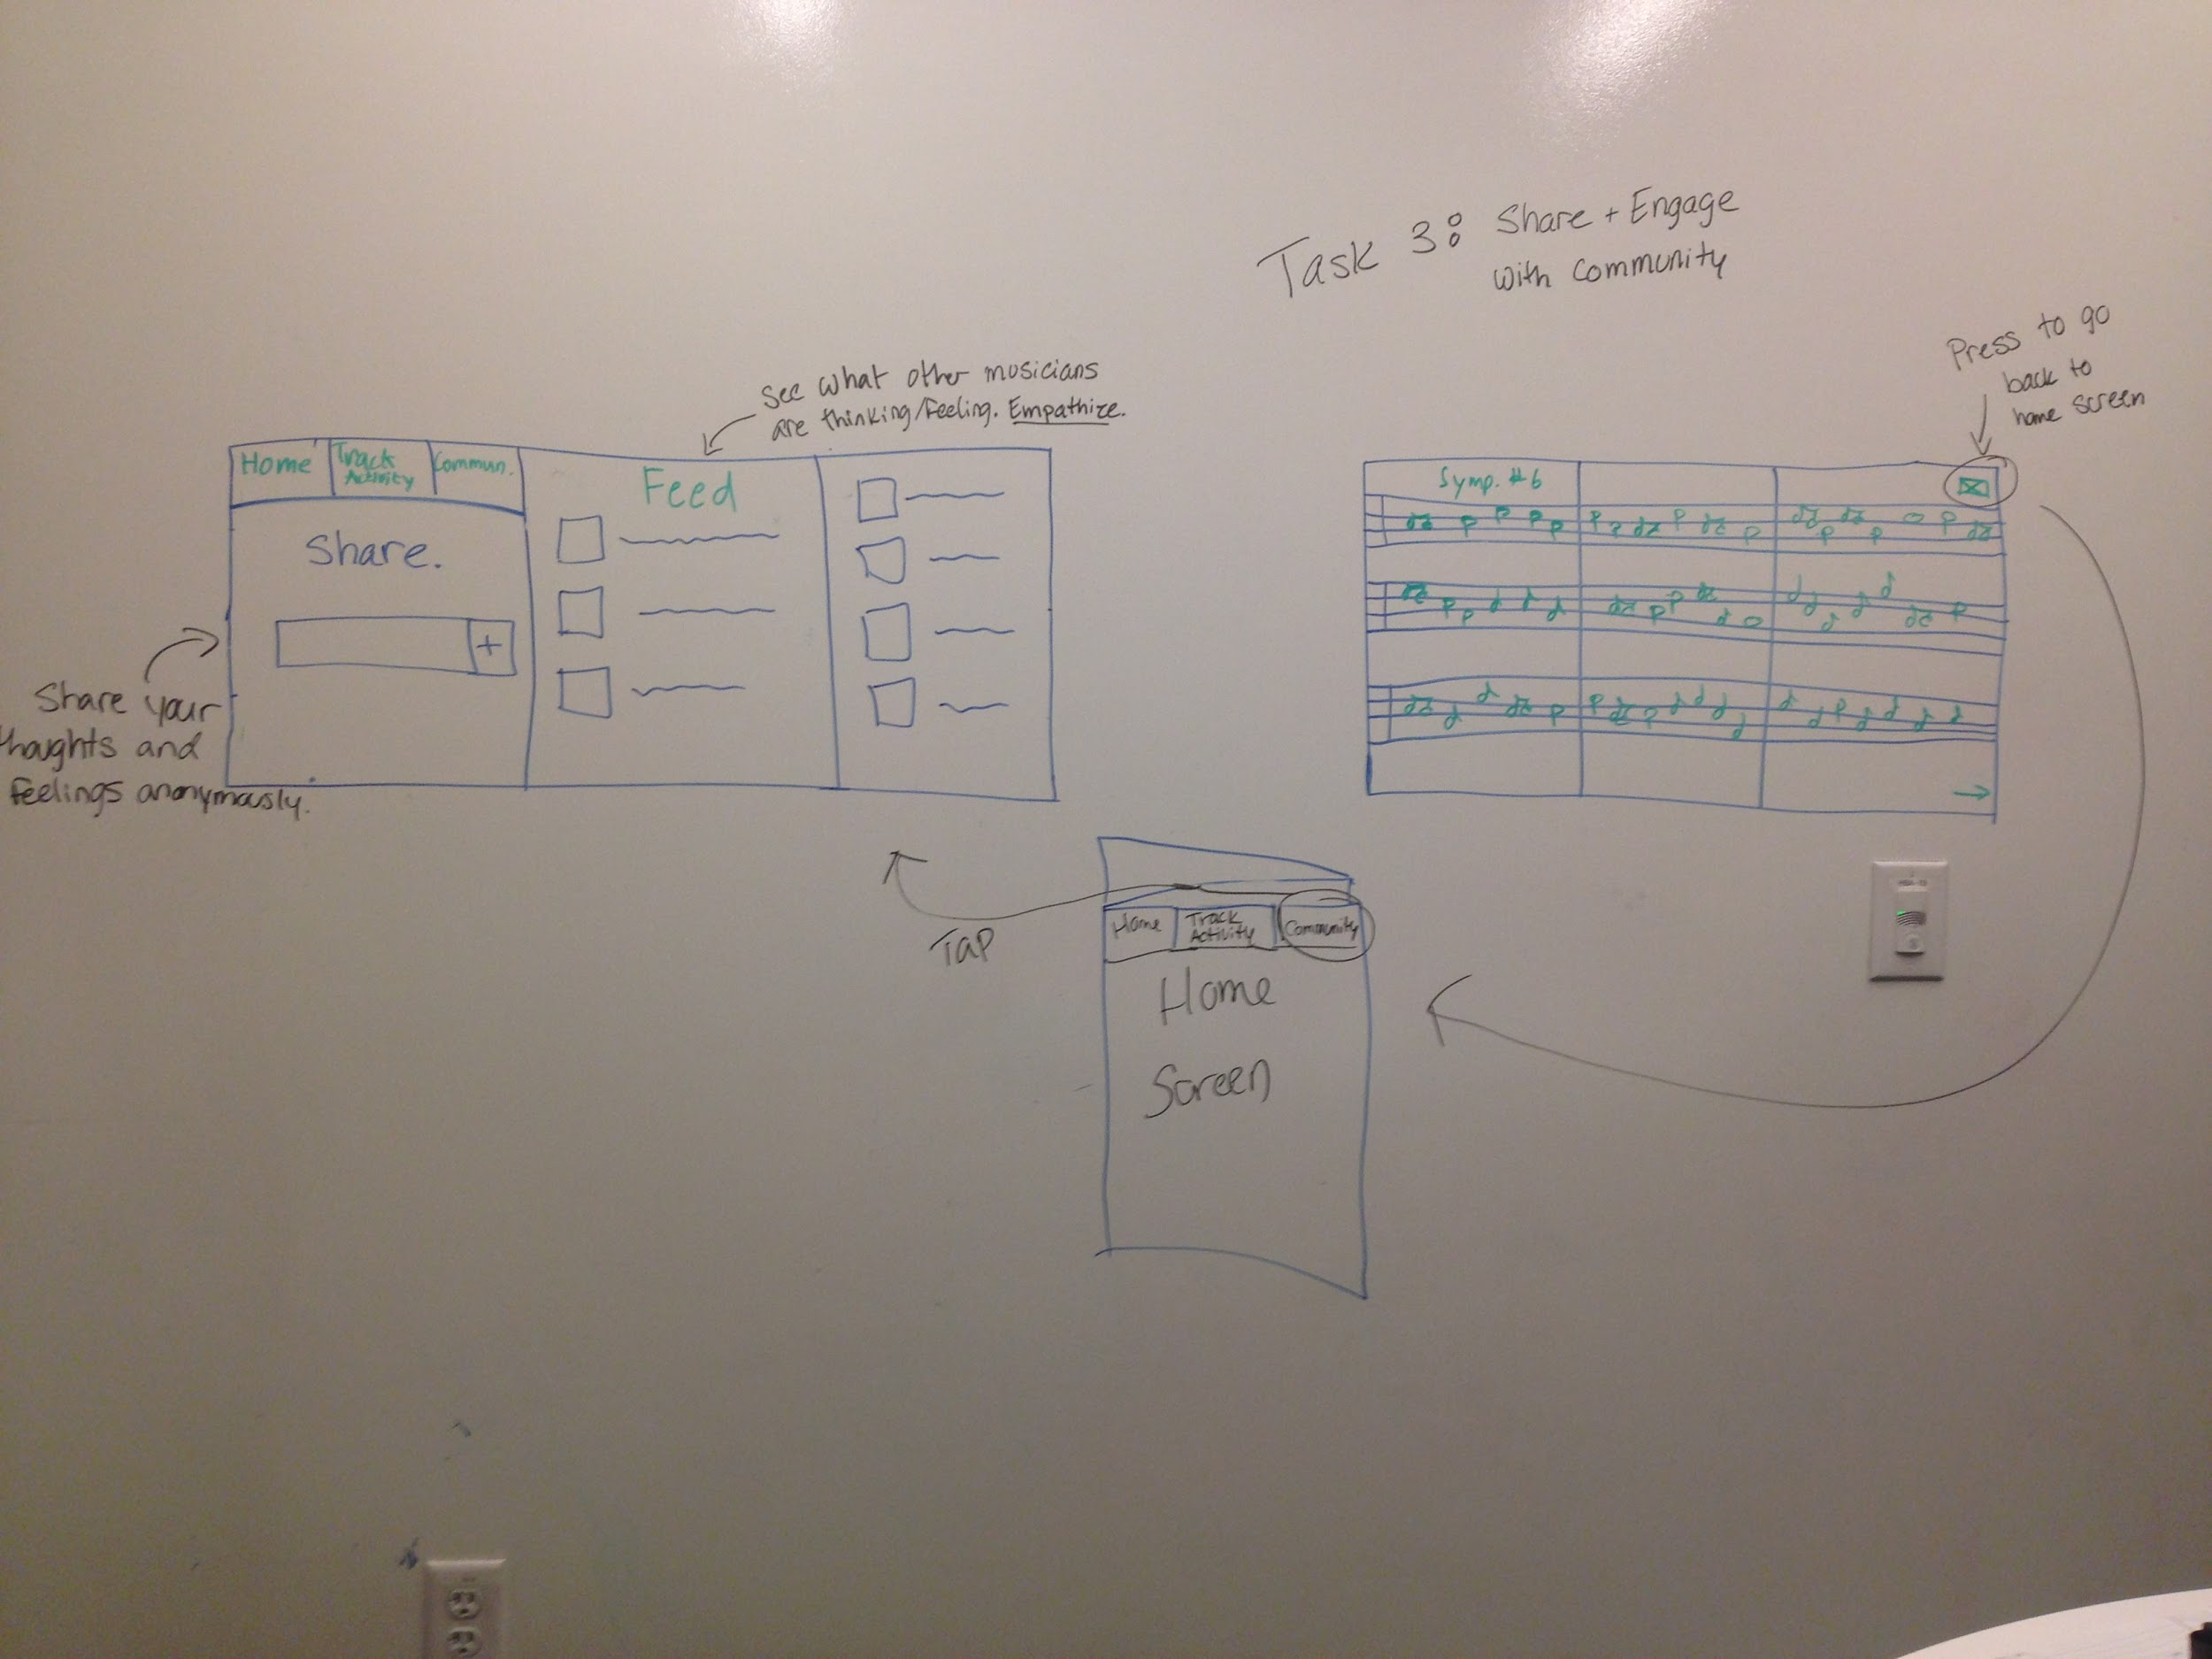 Task 3: Share + Engage
with Community
See what other musicians
are thinking/feeling. Empathize.
Home
Track
Activity
Commun.
Share.
+
Feed
Share your
thoughts and
feelings anonymously.
Press to go
back to
home screen
Symp. #6
Tap
Home
Track
Activity
Community
Home
Screen